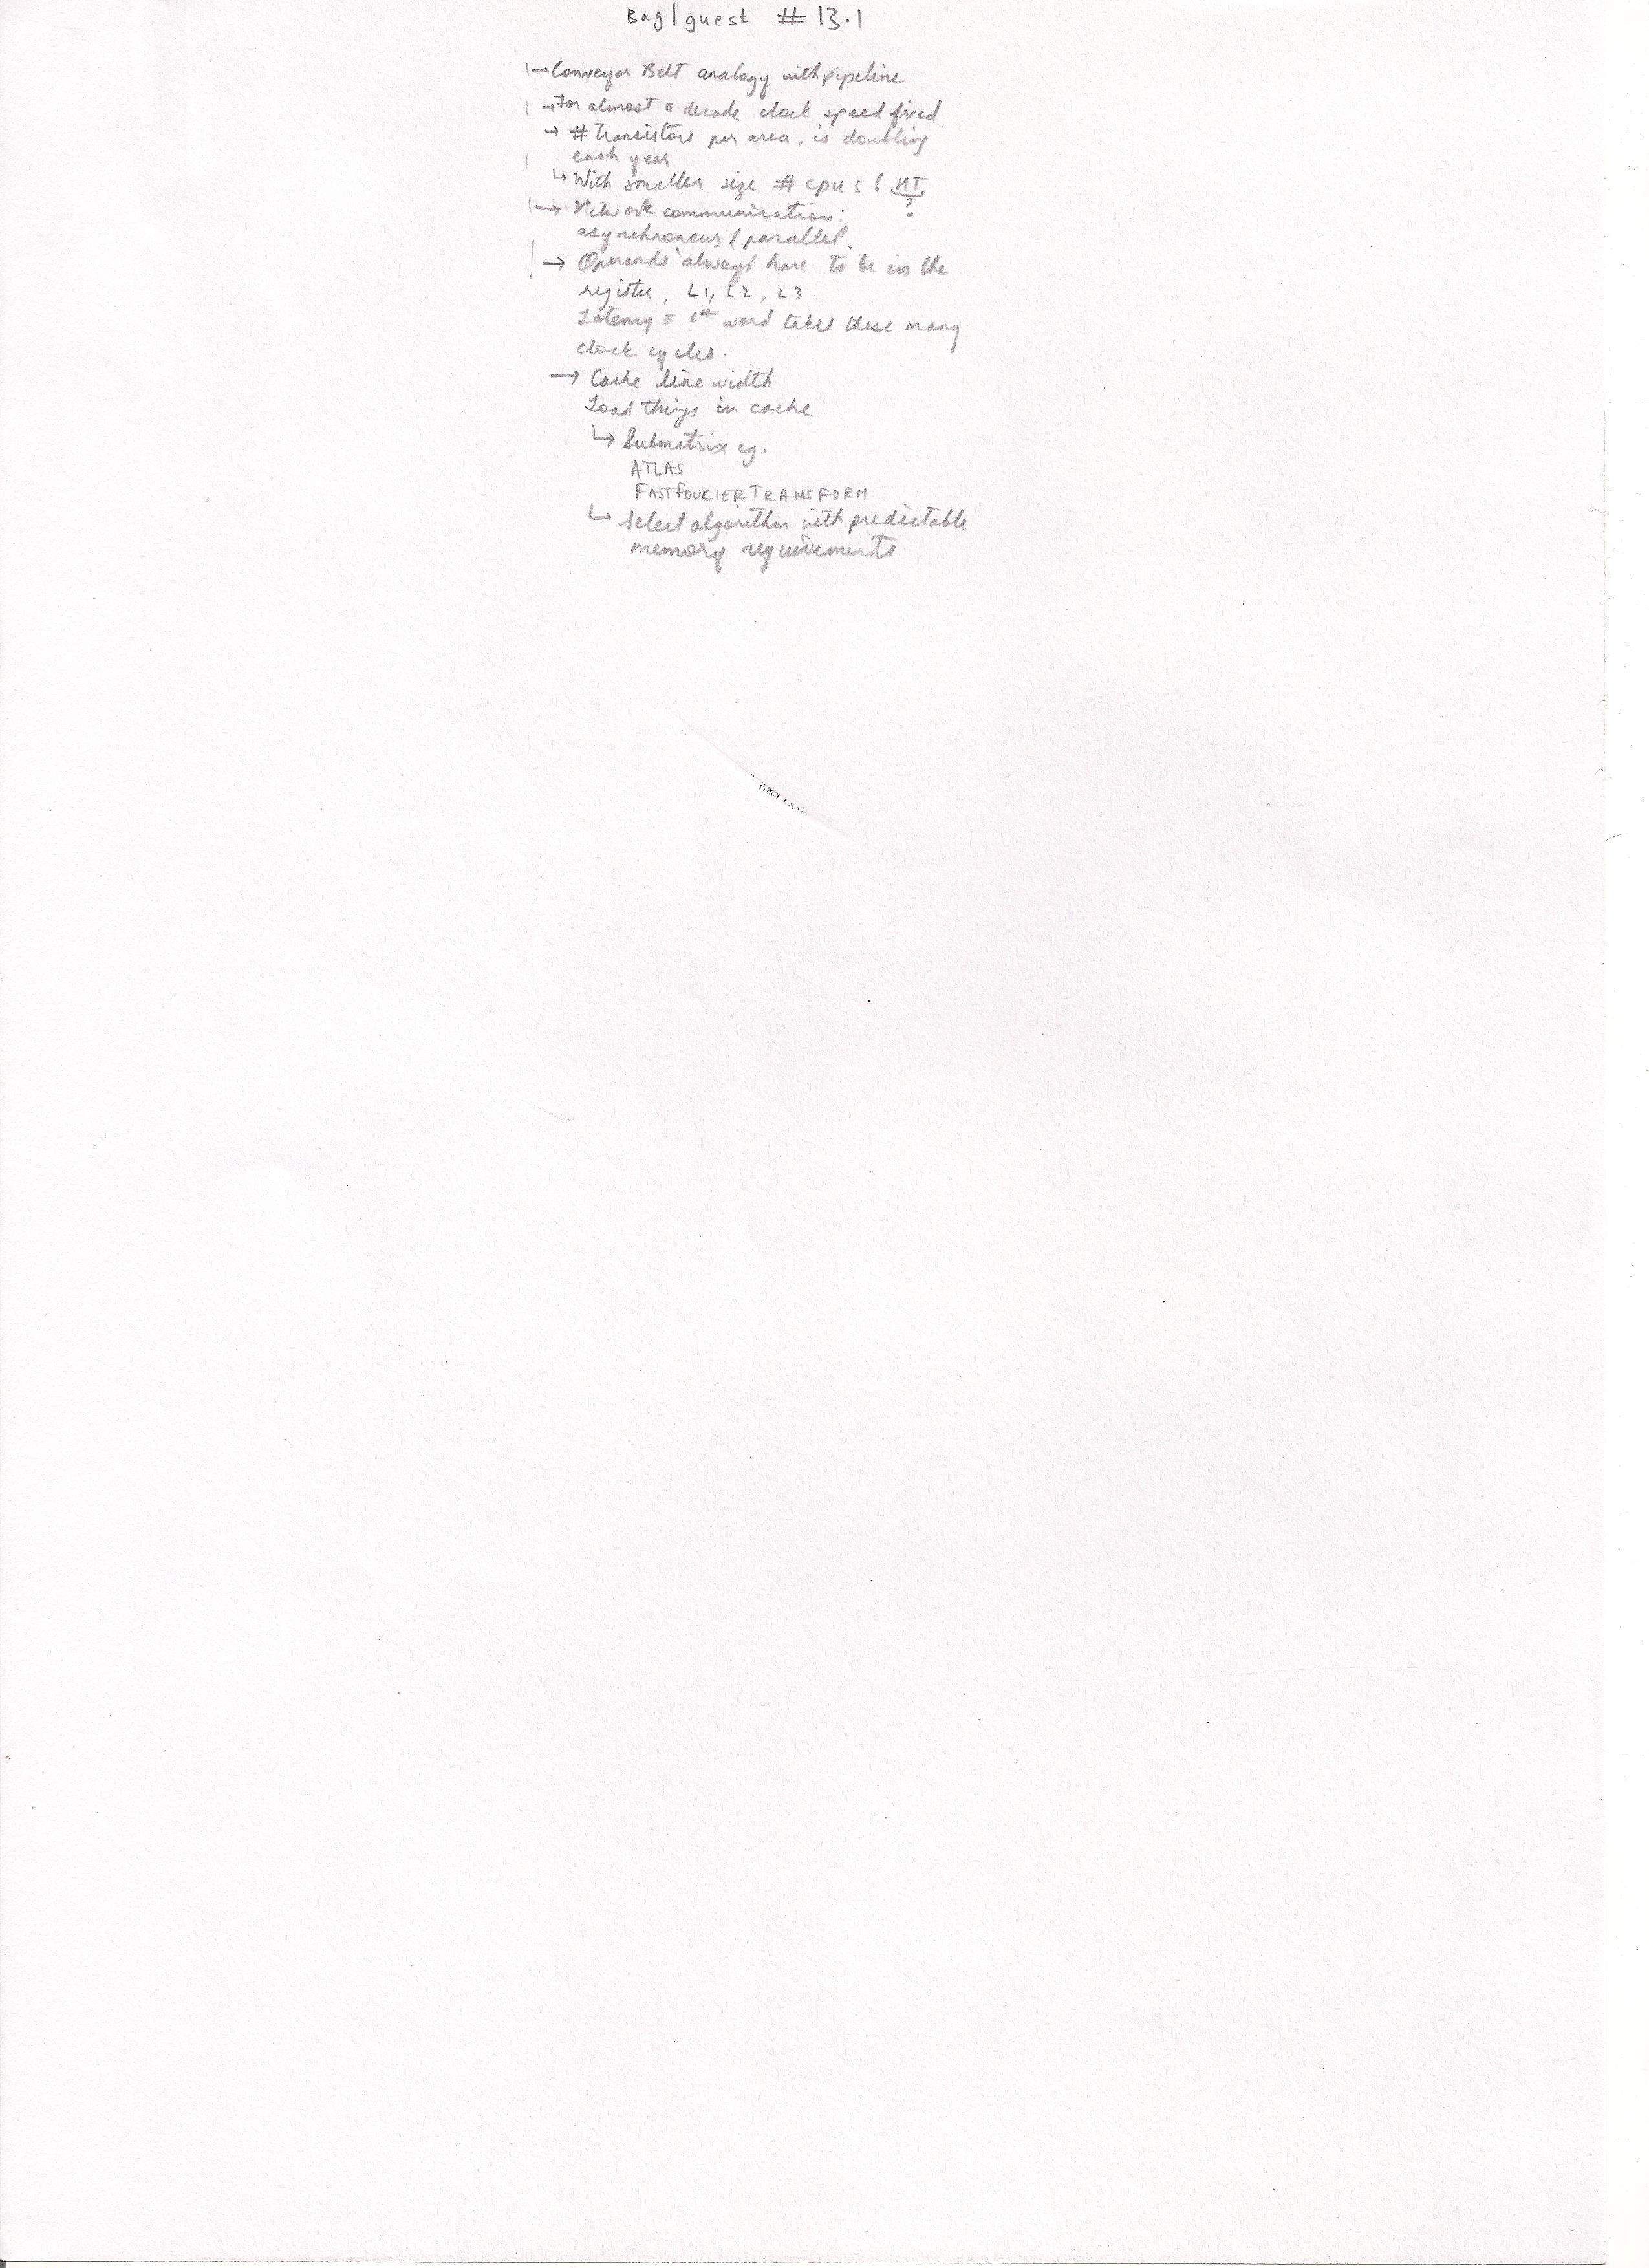 Bag/guest # 13.1
→ Conveyor Belt analogy with pipeline
→ For almost a decade clock speed fixed
→ # transistors per area, is doubling
each year
↳ With smaller size # cpu s & HT
?
→ Network communication:
asynchronous & parallel.
→ Operands always have to be in the
register, L1, L2, L3
Latency = 1st word takes these many
clock cycles.
→ Cache line width
Load things in cache
↳ Submatrix eg.
ATLAS
FASTFOURIERTRANSFORM
↳ Select algorithm with predictable
memory requirements